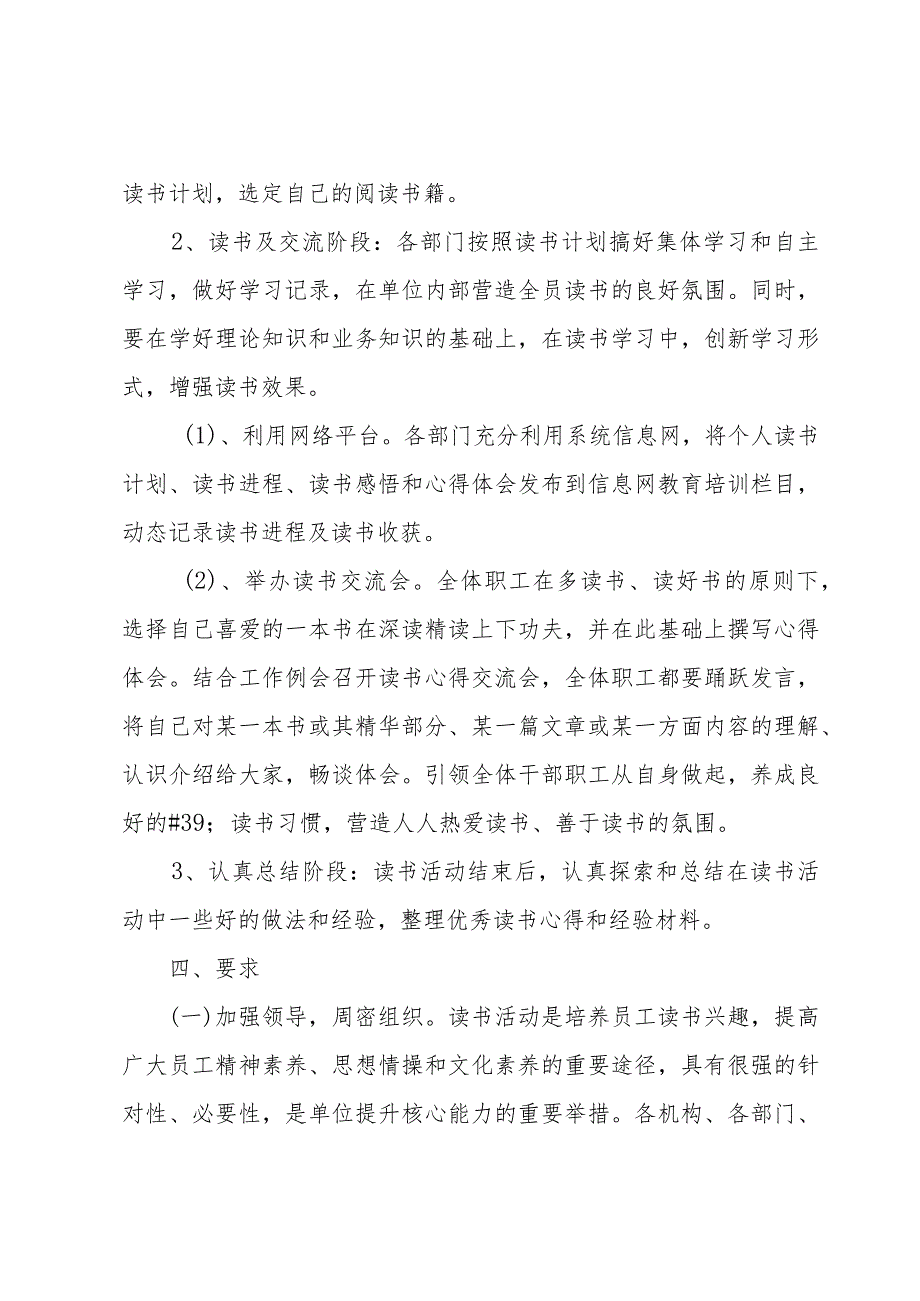 读书计划，选定自己的阅读书籍。
2、读书及交流阶段：各部门按照读书计划搞好集体学习和自主
学习，做好学习记录，在单位内部营造全员读书的良好氛围。同时，
要在学好理论知识和业务知识的基础上，在读书学习中，创新学习形
式，增强读书效果。
(1)、利用网络平台。各部门充分利用系统信息网，将个人读书
计划、读书进程、读书感悟和心得体会发布到信息网教育培训栏目，
动态记录读书进程及读书收获。
(2)、举办读书交流会。全体职工在多读书、读好书的原则下，
选择自己喜爱的一本书在深读精读上下功夫，并在此基础上撰写心得
体会。结合工作例会召开读书心得交流会，全体职工都要踊跃发言，
将自己对某一本书或其精华部分、某一篇文章或某一方面内容的理解、
认识介绍给大家，畅谈体会。引领全体干部职工从自身做起，养成良
好的#39；读书习惯，营造人人热爱读书、善于读书的氛围。
3、认真总结阶段：读书活动结束后，认真探索和总结在读书活
动中一些好的做法和经验，整理优秀读书心得和经验材料。
四、要求
(一)加强领导，周密组织。读书活动是培养员工读书兴趣，提高
广大员工精神素养、思想情操和文化素养的重要途径，具有很强的针
对性、必要性，是单位提升核心能力的重要举措。各机构、各部门、